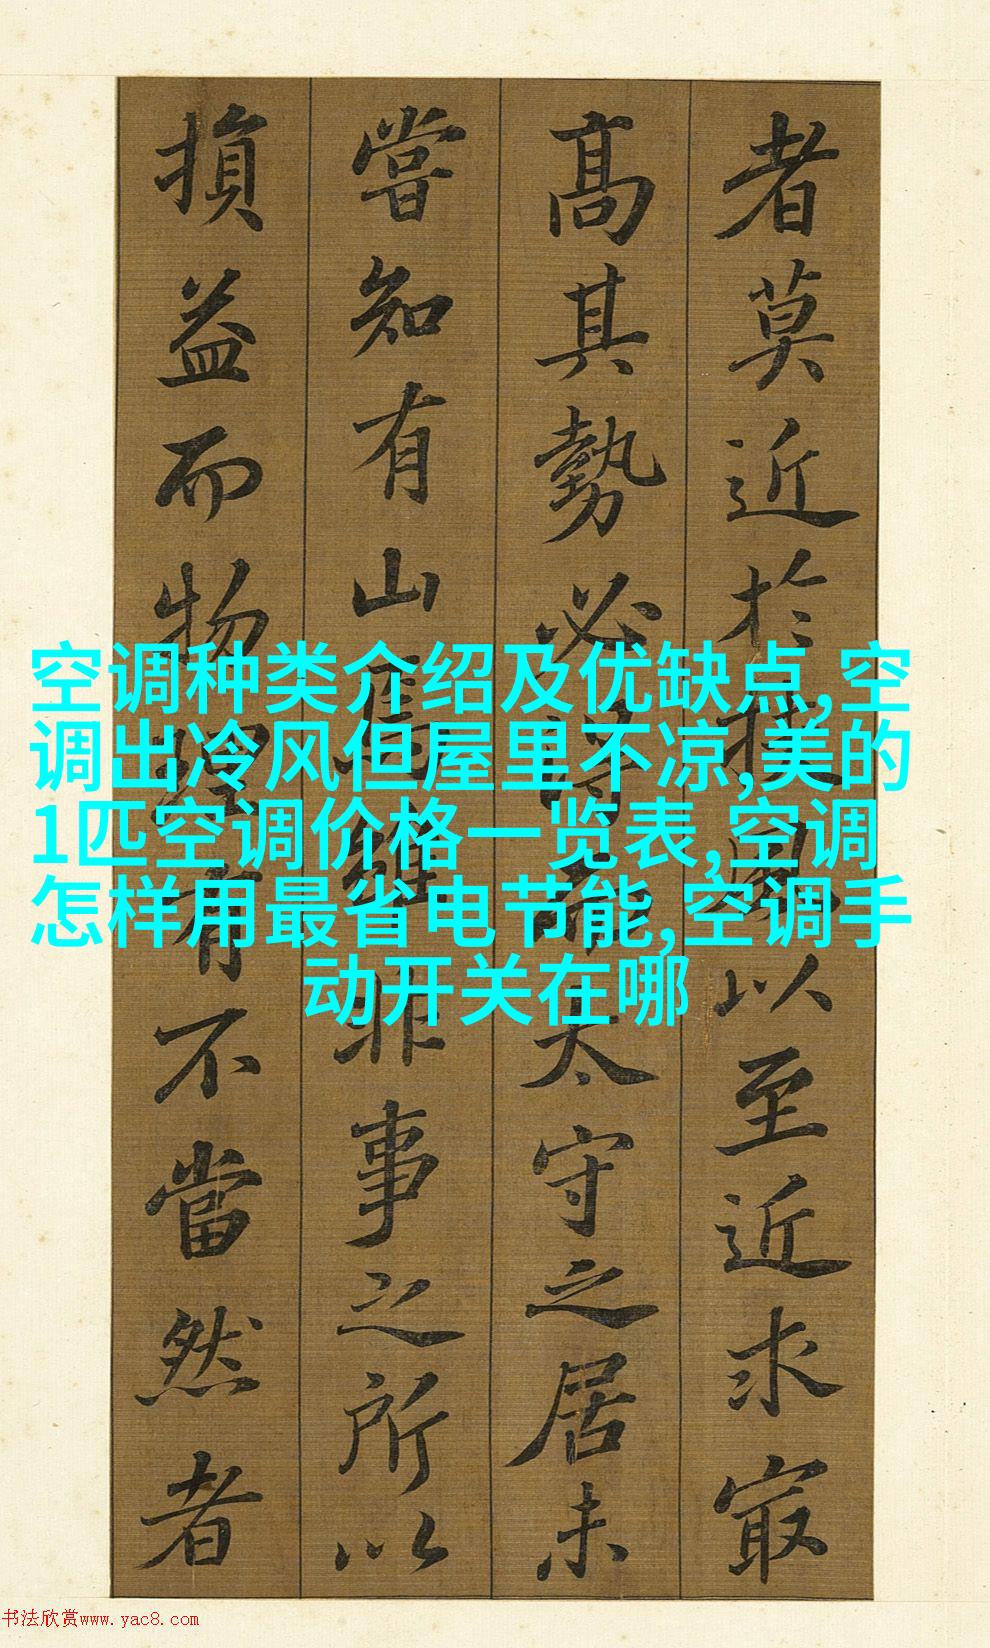 者莫近於扶風以至近求㝡
髙其勢必得而太守之居未
嘗知有山焉雖非事之所以
損益而物理有不當然者
空调种类介绍及优缺点,空
调出冷风但屋里不凉,美的
1匹空调价格一览表,空调
怎样用最省电节能,空调手
动开关在哪
书法欣赏www.yac8.com